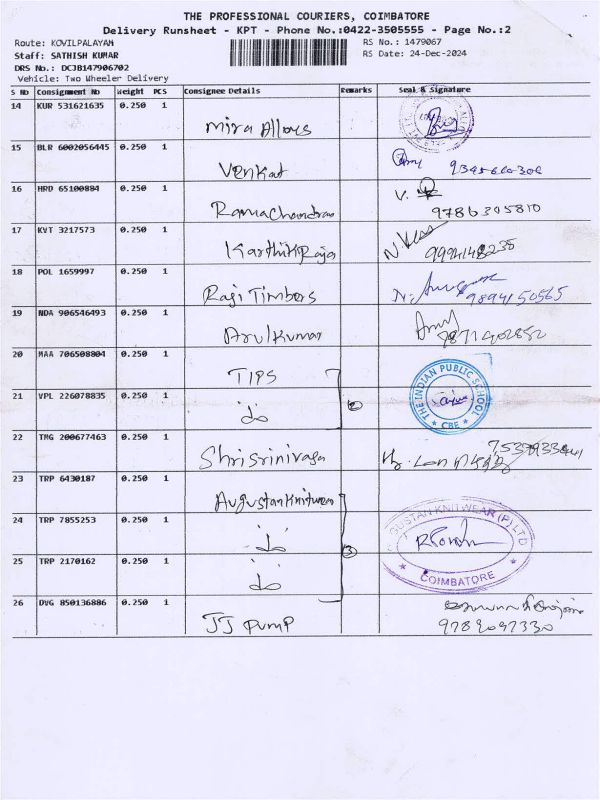 THE PROFESSIONAL COURIERS, COIMBATORE
Delivery Runsheet - KPT - Phone No.:0422-3505555 - Page No.:2
Route: KOVILPALAYAM
RS No.: 1479067
Staff: SATHISH KUMAR
RS Date: 24-Dec-2024
DRS No.: DCJB147906702
Vehicle: Two Wheeler Delivery
S No Consignment No Weight PCS Consignee Details Remarks Seal & Signature
14 KUR 531621635 0.250 1 Mira Alloys
15 BLR 6002056445 0.250 1 Venkat
16 HRD 65100884 0.250 1 Ramachandran V. 9786305810
17 KVT 3217573 0.250 1 KarthikRaja
18 POL 1659997 0.250 1 Ragi Timbers 9894150565
19 NDA 906546493 0.250 1 Arulkumar
20 MAA 706508804 0.250 1 TIPS
21 VPL 226078835 0.250 1 2 THE INDIAN PUBLIC SCHOOL CBE
22 TMG 200677463 0.250 1 Shrisrinivasa
23 TRP 6430187 0.250 1 Augustan Knitwear
24 TRP 7855253 0.250 1 3 AUGUSTAN KNITWEAR (P) LTD
25 TRP 2170162 0.250 1 COIMBATORE
26 DVG 850136886 0.250 1 JJ pump 9789097330